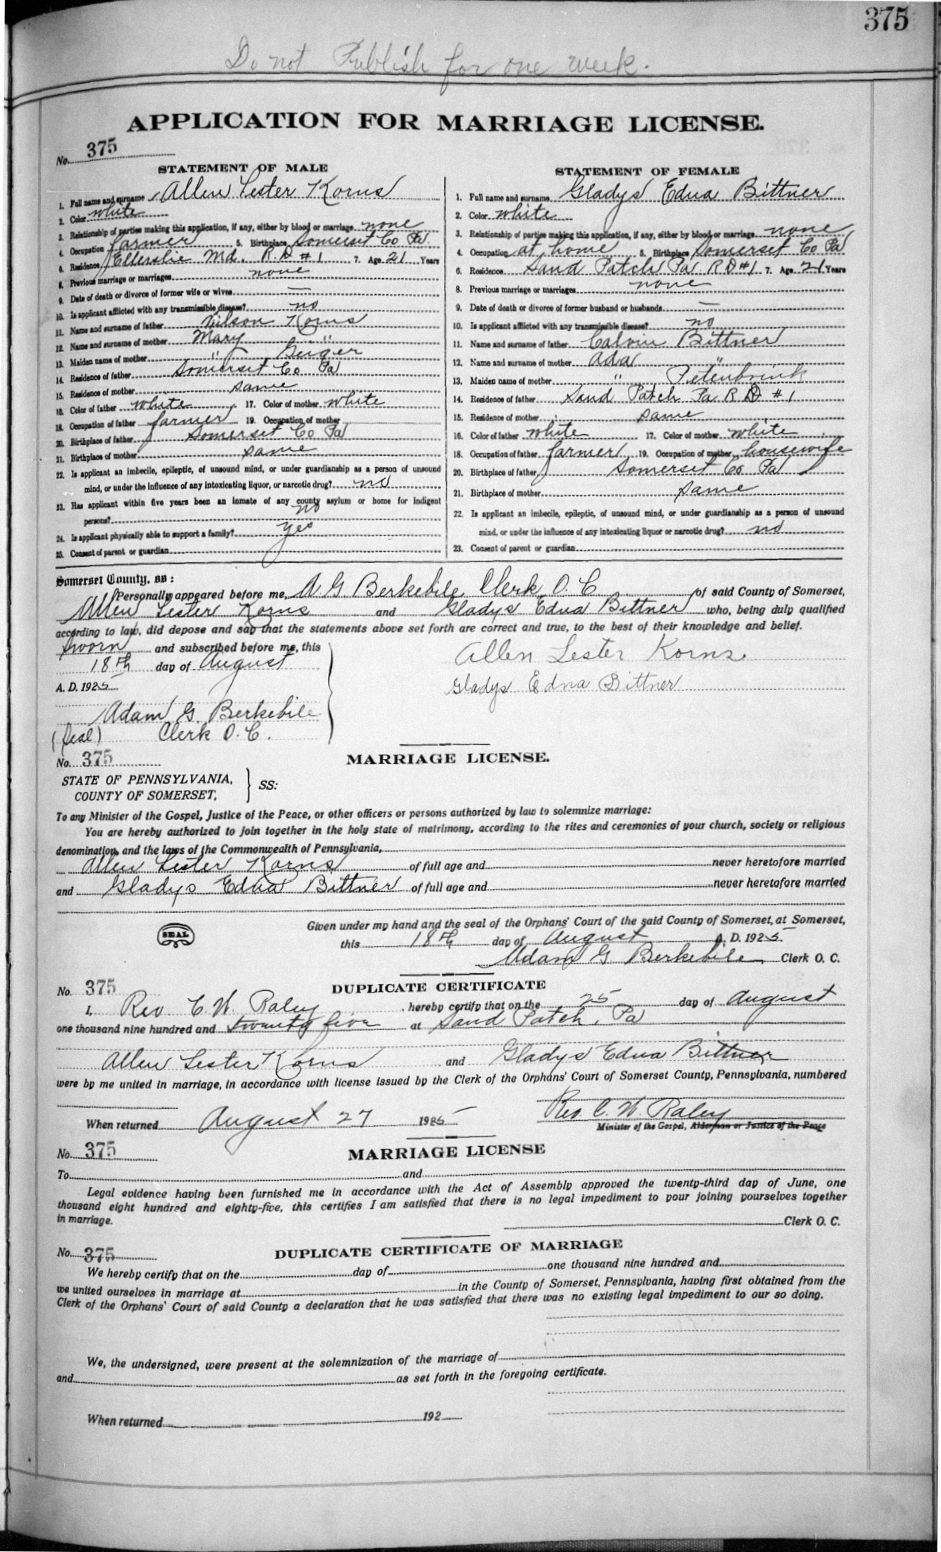 375
Do not Publish for one week.
APPLICATION FOR MARRIAGE LICENSE.
No. 375
STATEMENT OF MALE
1. Full name and surname Allen Lester Korns
2. Color white
3. Relationship of parties making this application, if any, either by blood or marriage none
4. Occupation farmer 5. Birthplace Somerset Co Pa
6. Residence Ellerslie Md. R.D #1 7. Age 21 Years
8. Previous marriage or marriages none
9. Date of death or divorce of former wife or wives —
10. Is applicant afflicted with any transmissible disease? no
11. Name and surname of father Wilson Korns
12. Name and surname of mother Mary "
13. Maiden name of mother " Berger
14. Residence of father Somerset Co Pa
15. Residence of mother same
16. Color of father white 17. Color of mother white
18. Occupation of father farmer 19. Occupation of mother
20. Birthplace of father Somerset Co Pa
21. Birthplace of mother same
22. Is applicant an imbecile, epileptic, of unsound mind, or under guardianship as a person of unsound
mind, or under the influence of any intoxicating liquor, or narcotic drug? no
23. Has applicant within five years been an inmate of any county asylum or home for indigent
persons? no
24. Is applicant physically able to support a family? yes
25. Consent of parent or guardian
STATEMENT OF FEMALE
1. Full name and surname Gladys Edna Bittner
2. Color white
3. Relationship of parties making this application, if any, either by blood or marriage none
4. Occupation at home 5. Birthplace Somerset Co Pa
6. Residence Sand Patch Pa R D #1 7. Age 21 Years
8. Previous marriage or marriages none
9. Date of death or divorce of former husband or husbands —
10. Is applicant afflicted with any transmissible disease? no
11. Name and surname of father Calvin Bittner
12. Name and surname of mother Ada "
13. Maiden name of mother "
14. Residence of father Sand Patch Pa R D #1
15. Residence of mother same
16. Color of father white 17. Color of mother white
18. Occupation of father farmer 19. Occupation of mother housewife
20. Birthplace of father Somerset Co Pa
21. Birthplace of mother same
22. Is applicant an imbecile, epileptic, of unsound mind, or under guardianship as a person of unsound
mind, or under the influence of any intoxicating liquor or narcotic drug? no
23. Consent of parent or guardian
Somerset County, ss:
Personally appeared before me, A G Berkebile Clerk O. C of said County of Somerset,
Allen Lester Korns and Gladys Edna Bittner who, being duly qualified
according to law, did depose and say that the statements above set forth are correct and true, to the best of their knowledge and belief.
Sworn and subscribed before me, this
18th day of August
A. D. 1925
Adam G. Berkebile
(Seal) Clerk O. C.
Allen Lester Korns
Gladys Edna Bittner
No. 375 MARRIAGE LICENSE.
STATE OF PENNSYLVANIA,
COUNTY OF SOMERSET,
SS:
To any Minister of the Gospel, Justice of the Peace, or other officers or persons authorized by law to solemnize marriage:
You are hereby authorized to join together in the holy state of matrimony, according to the rites and ceremonies of your church, society or religious
denomination, and the laws of the Commonwealth of Pennsylvania,
Allen Lester Korns of full age and never heretofore married
and Gladys Edna Bittner of full age and never heretofore married
Given under my hand and the seal of the Orphans' Court of the said County of Somerset, at Somerset,
SEAL
this 18th day of August A. D. 1925
Adam G Berkebile Clerk O. C.
No. 375 DUPLICATE CERTIFICATE
I, Rev C. W. Raley, hereby certify that on the 25 day of August
one thousand nine hundred and twenty five at Sand Patch, Pa
Allen Lester Korns and Gladys Edna Bittner
were by me united in marriage, in accordance with license issued by the Clerk of the Orphans' Court of Somerset County, Pennsylvania, numbered
Rev. C. W. Raley
When returned August 27 1925
Minister of the Gospel, Alderman or Justice of the Peace
No. 375 MARRIAGE LICENSE
To and
Legal evidence having been furnished me in accordance with the Act of Assembly approved the twenty-third day of June, one
thousand eight hundred and eighty-five, this certifies I am satisfied that there is no legal impediment to your joining yourselves together
in marriage.
Clerk O. C.
No. 375 DUPLICATE CERTIFICATE OF MARRIAGE
We hereby certify that on the day of one thousand nine hundred and
we united ourselves in marriage at in the County of Somerset, Pennsylvania, having first obtained from the
Clerk of the Orphans' Court of said County a declaration that he was satisfied that there was no existing legal impediment to our so doing.
We, the undersigned, were present at the solemnization of the marriage of
and as set forth in the foregoing certificate.
When returned 192